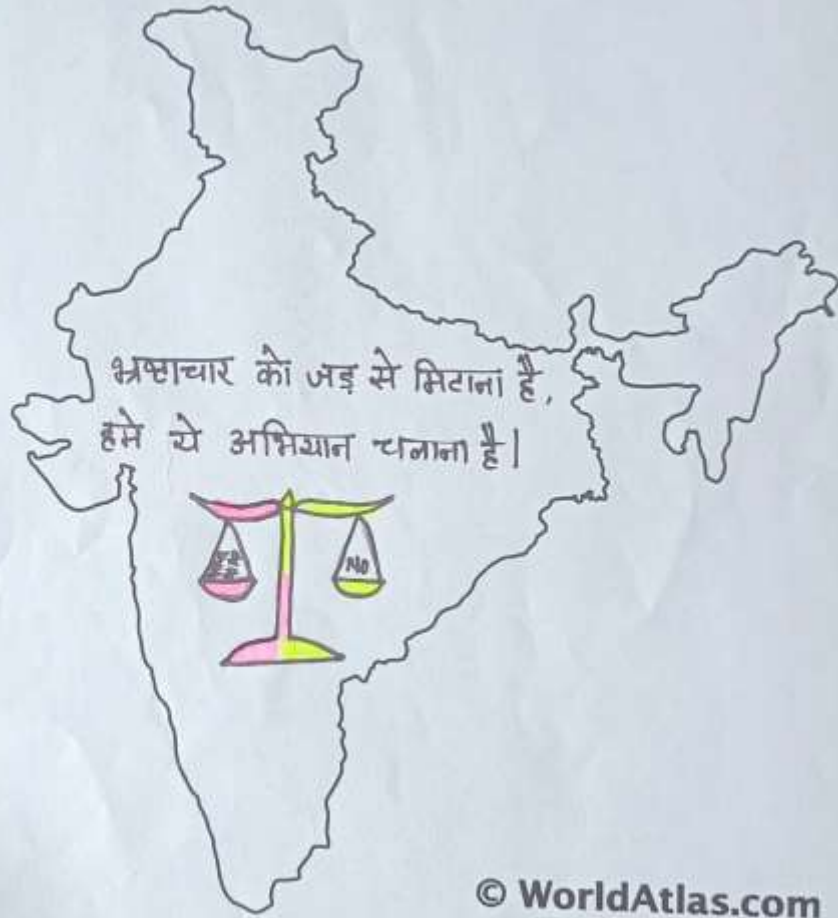 भ्रष्टाचार को जड़ से मिटाना है,
हमे ये अभियान चलाना है।
NO
© WorldAtlas.com